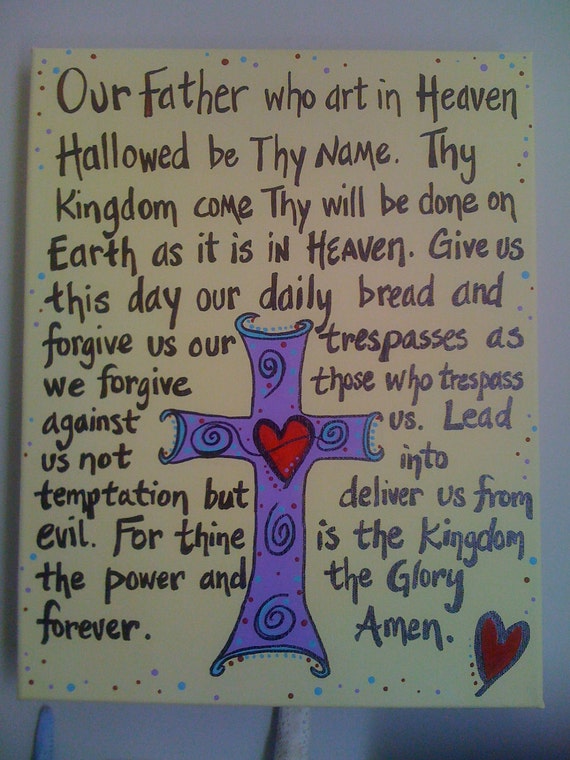 Our Father who art in Heaven
Hallowed be Thy Name. Thy
Kingdom come Thy will be done on
Earth as it is in Heaven. Give us
this day our daily bread and
forgive us our trespasses as
we forgive those who trespass
against us. Lead
us not into
temptation but deliver us from
evil. For thine is the Kingdom
the power and the Glory
forever. Amen.